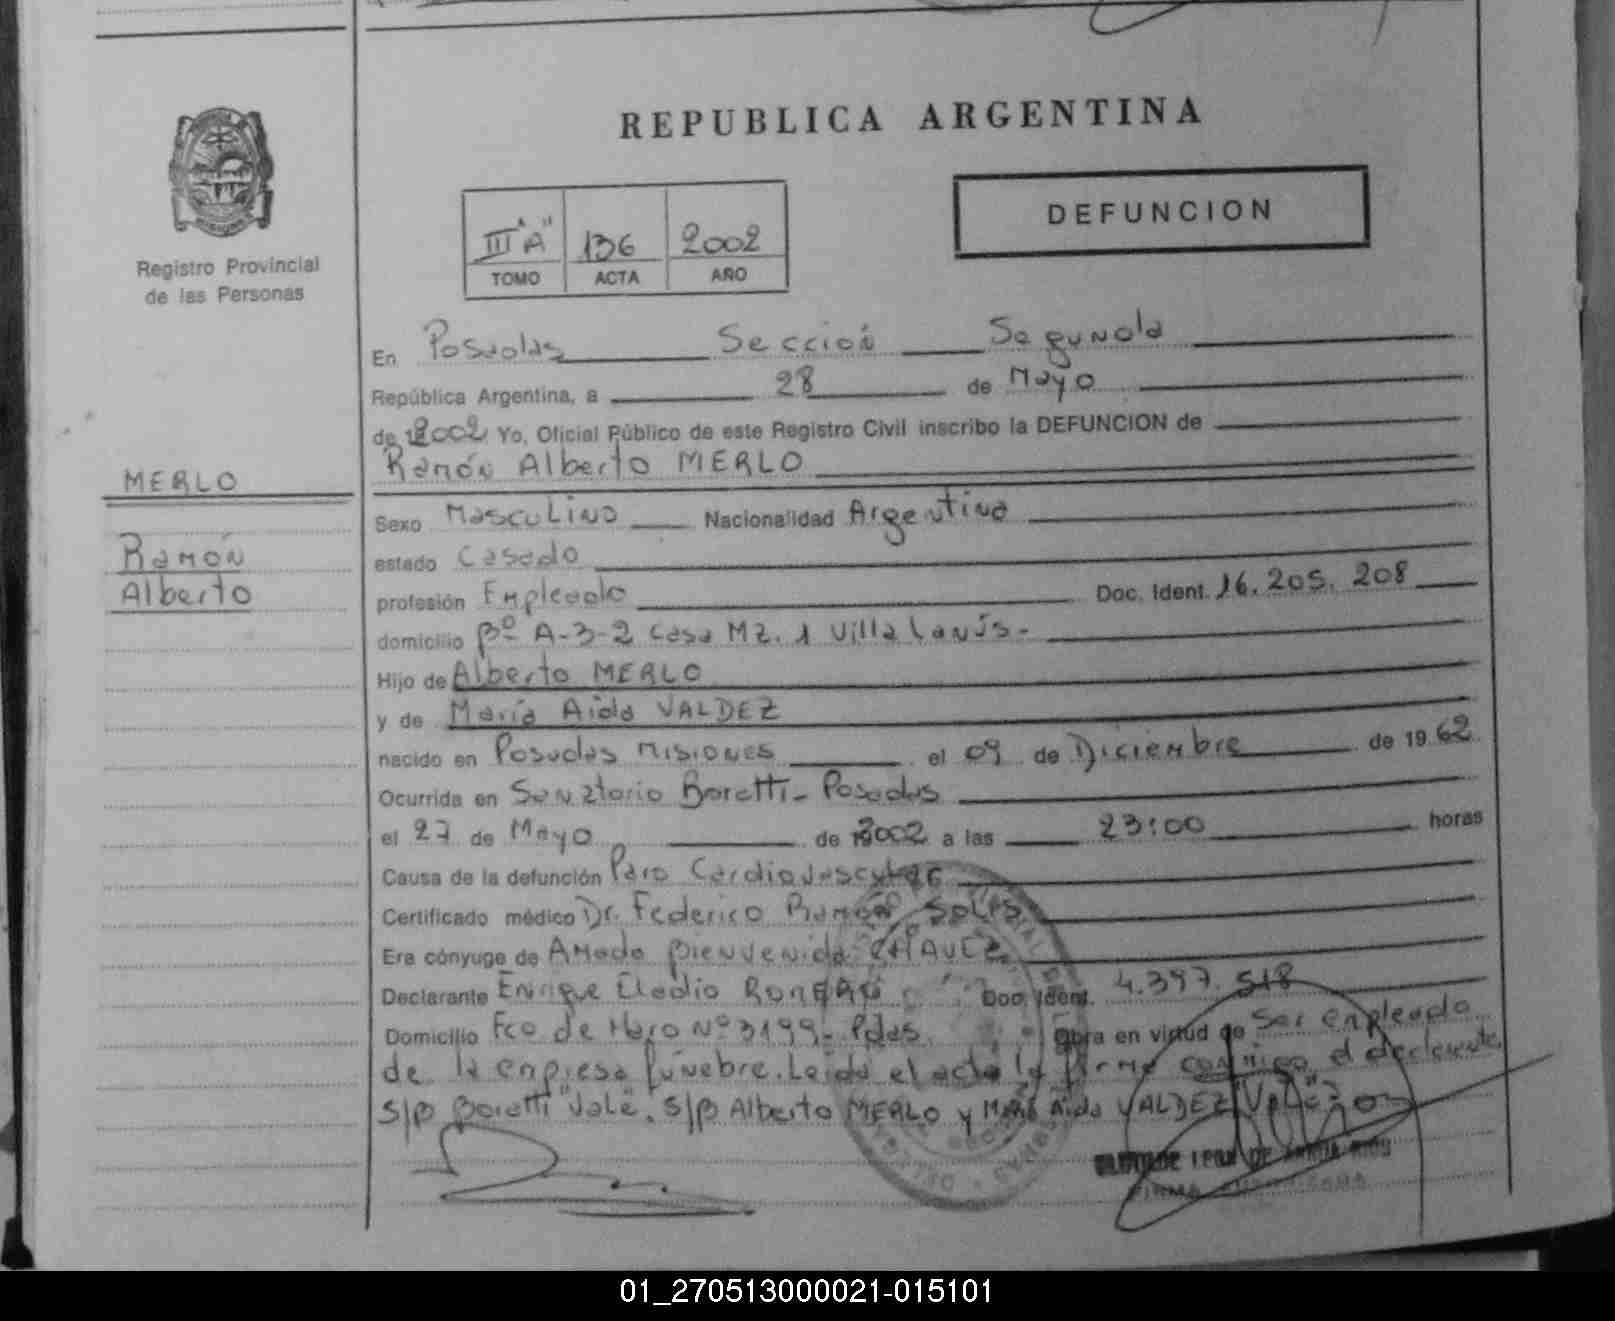 REPUBLICA ARGENTINA
DEFUNCION
III "A" 136 2002
TOMO ACTA AÑO
Registro Provincial
de las Personas
En Posadas Sección Segunda
República Argentina, a 28 de Mayo
de 2002 Yo, Oficial Público de este Registro Civil inscribo la DEFUNCION de
Ramón Alberto MERLO
MERLO
Ramón
Alberto
Sexo Masculino Nacionalidad Argentina
estado Casado
profesión Empleado Doc. Ident. 16.205.208
domicilio Bº A-3-2 Casa Mz. 1 Villa Lanús-
Hijo de Alberto MERLO
y de María Aida VALDEZ
nacido en Posadas Misiones el 09 de Diciembre de 1962
Ocurrida en Sanatorio Boretti- Posadas
el 27 de Mayo de 2002 a las 23:00 horas
Causa de la defunción Paro Cardiovascular
Certificado médico Dr. Federico Ramón SOLIS
Era cónyuge de Amada Bienvenida CHAVEZ
Declarante Enrique Eladio Doc. Ident. 4.397.518
Domicilio Fco. de Haro Nº 3199- Pdas. Obra en virtud de ser empleado
de la empresa fúnebre. Leída el acta la firma conmigo el declarante
S/B Boretti "Vale". S/B Alberto MERLO y María Aida VALDEZ "Vale"
01_270513000021-015101